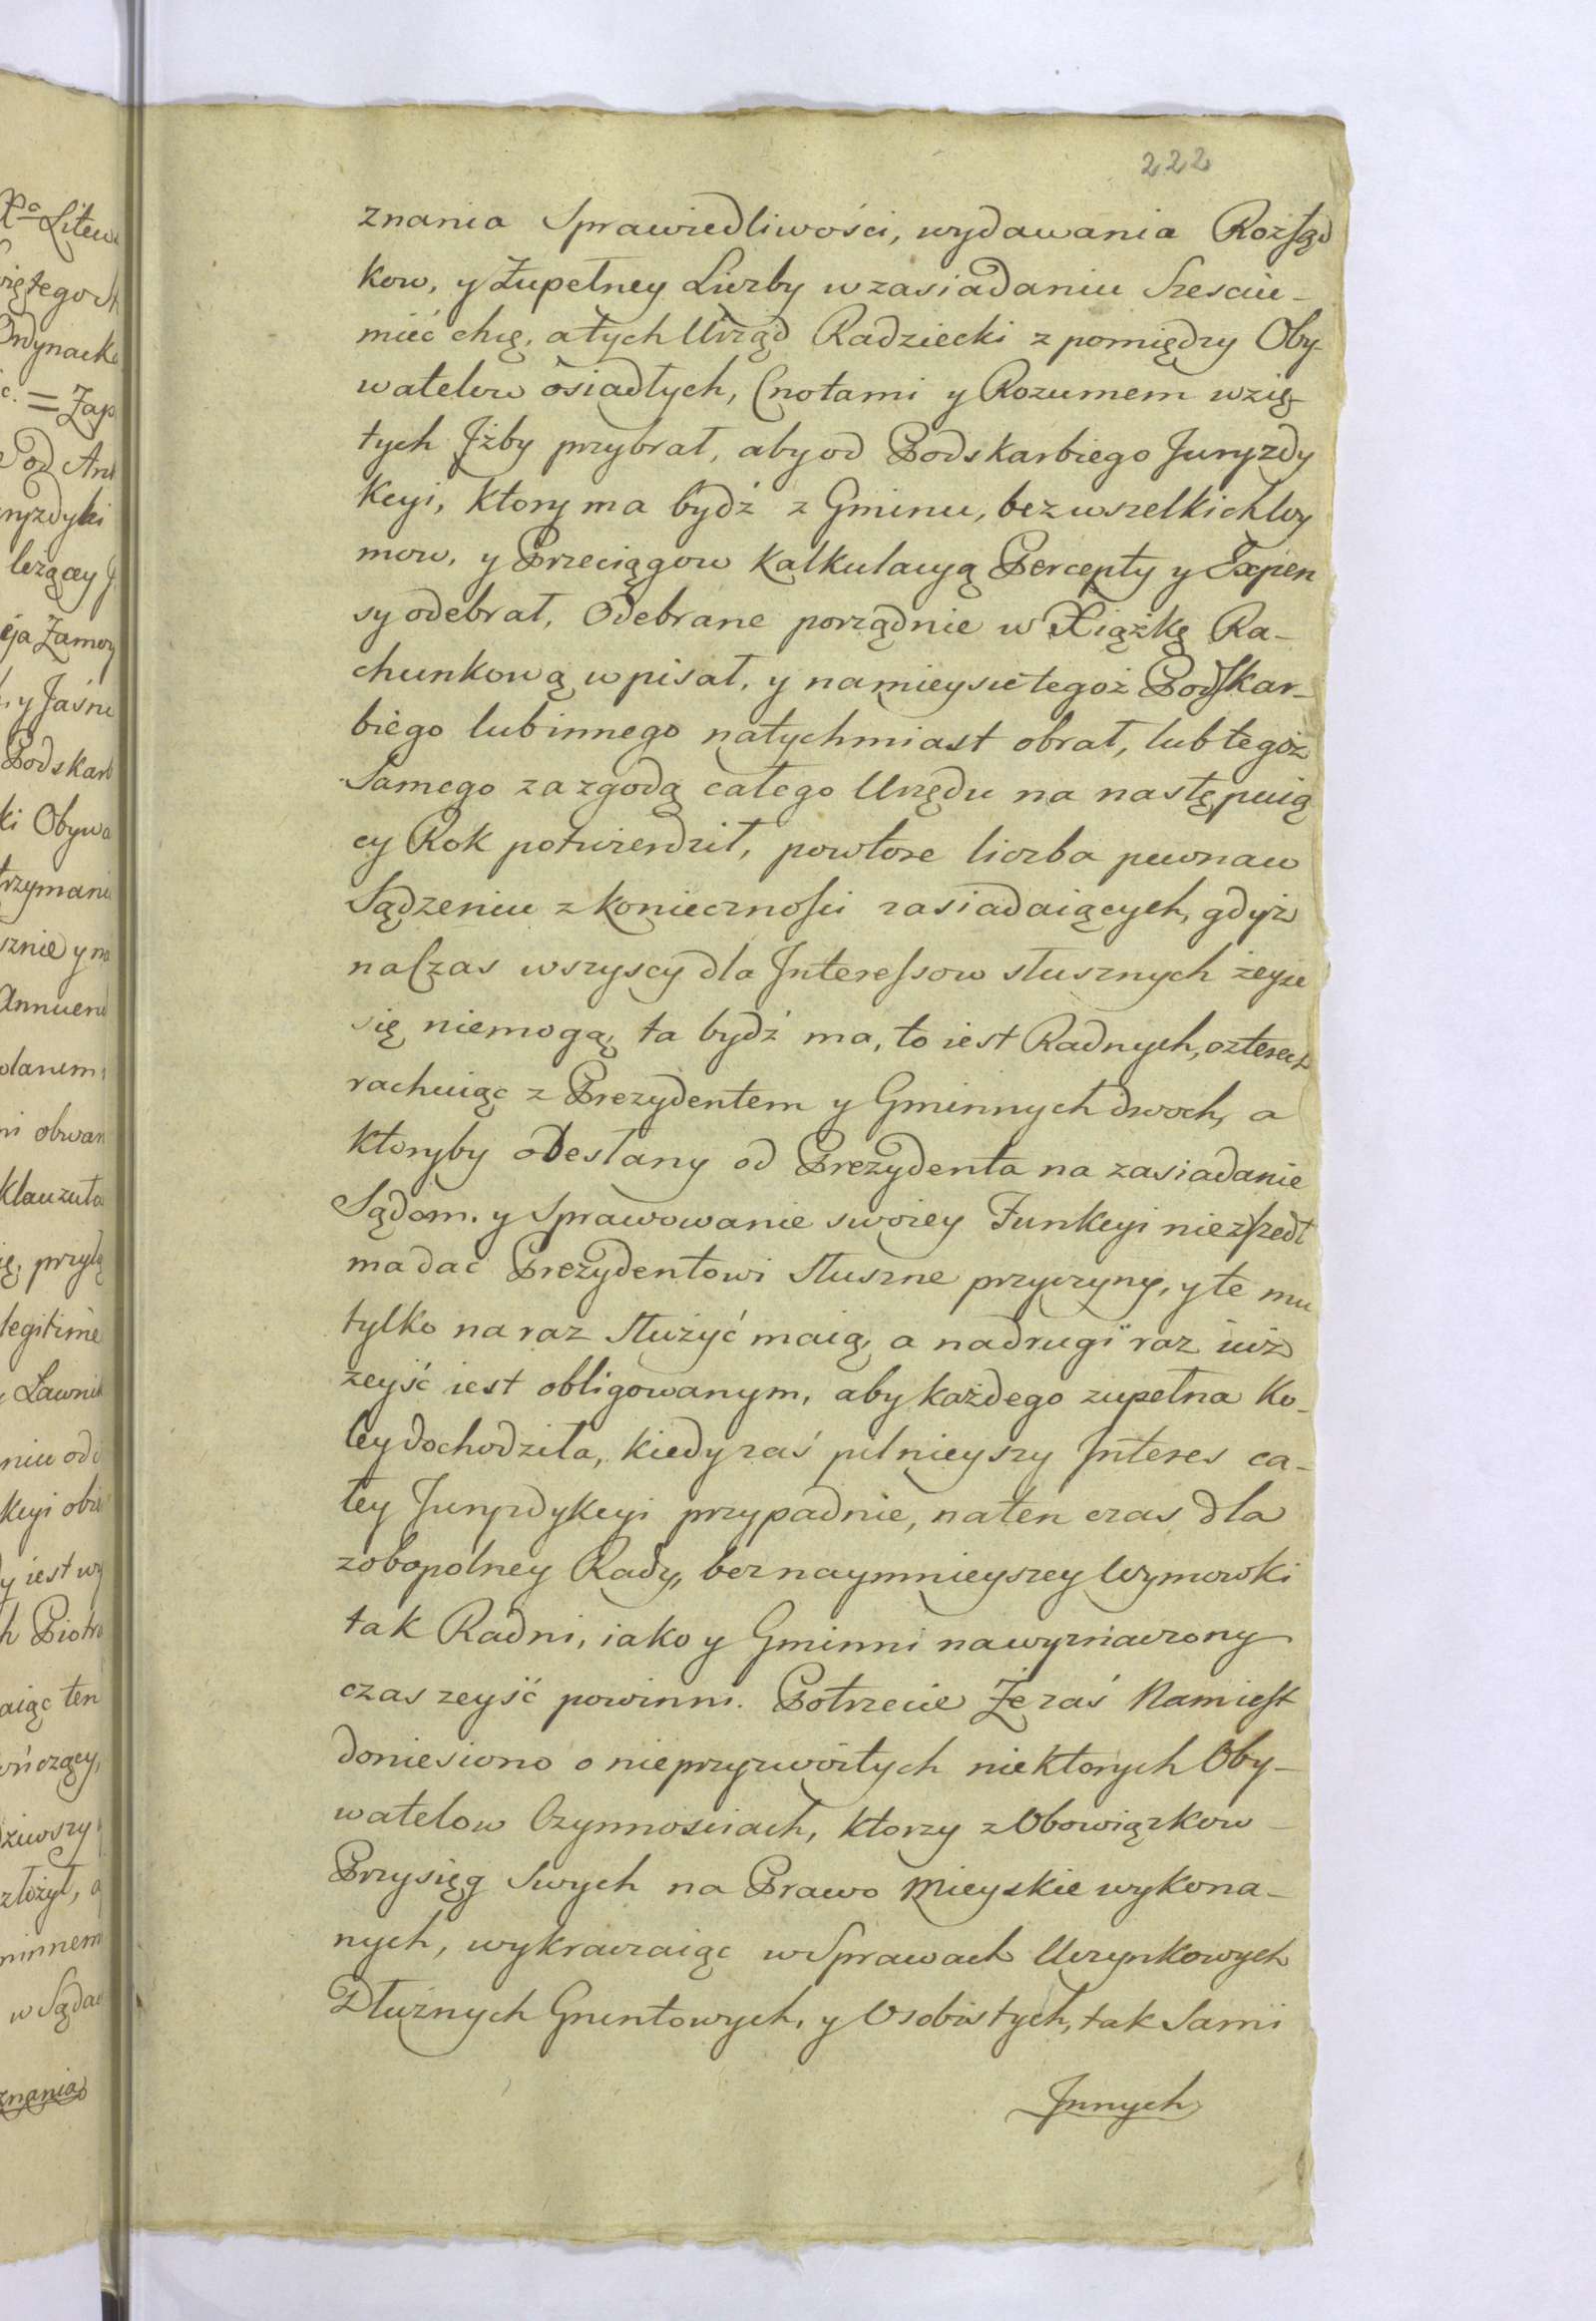 222
znania Sprawiedliwości, wydawania Rozsąd
kow, y Zupełney Liczby w zasiadaniu Szesciu-
mieć chcę, a tych Urząd Radziecki z pomiędzy Oby-
watelow osiadłych, Cnotami y Rozumem wzię-
tych Jżby przybrał, aby od Podskarbiego Juryzdy
kcyi, ktory ma bydź z Gminu, bez wszelkich Wy
mow, y Przeciągow Kalkulacyą Percepty y Expen
sy odebrał, Odebrane porządnie w Xiążkę Ra-
chunkową wpisał, y na mieysce tegoż Podskar-
biego lub innego natychmiast obrał, lub tegoż
Samego za zgodą całego Urzędu na następuią
cy Rok potwierdził, powtore liczba pewna w
Sądzeniu z konieczności zasiadaiących, gdyż
na Czas wszyscy dla Jnteressow słusznych zeyść
się niemogą, ta bydź ma, to iest Radnych, czterech
rachuiąc z Prezydentem y Gminnych dwoch, a
ktoryby obesłany od Prezydenta na zasiadanie
Sądom, y Sprawowanie swoiey Funkcyi niezszedł
ma dać Prezydentowi słuszne przyczyny, y te mu
tylko na raz służyć maią, a na drugi raz iuż
zeyść iest obligowanym, aby każdego zupełna Ko-
ley dochodziła, kiedy zaś pilnieyszy Jnteres ca-
łey Juryzdykcyi przypadnie, na ten czas dla
zobopolney Rady, bez naymnieyszey Wymowki
tak Radni, iako y Gminni na wyznaczony
czas zeyść powinni. Potrzecie Że zaś Nam iest
doniesiono o nieprzyzwoitych niektorych Oby-
watelow Czynnościach, ktorzy z Obowiązkow-
Przysięg Swych na Prawo Mieyskie wykona-
nych, wykraczaiąc w Sprawach Uczynkowych
Dłużnych Gruntowych, y Osobistych, tak Sami
Jnnych